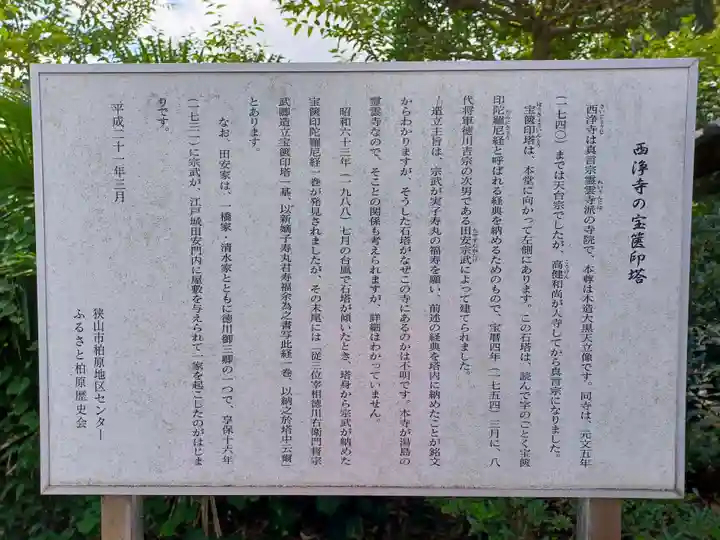 西浄寺の宝篋印塔
西浄寺は真言宗霊雲寺派の寺院で、本尊は木造大黒天立像です。同寺は、元文五年
(一七四〇)までは天台宗でしたが、高健和尚が入寺してから真言宗になりました。
宝篋印塔は、本堂に向かって左側にあります。この石塔は、読んで字のごとく宝篋
印陀羅尼経と呼ばれる経典を納めるためのもので、宝暦四年(一七五四)三月に、八
代将軍徳川吉宗の次男である田安宗武によって建てられました。
建立主旨は、宗武が実子寿丸の福寿を願い、前述の経典を塔内に納めたことが銘文
からわかりますが、そうした石塔がなぜこの寺にあるのかは不明です。本寺が湯島の
霊雲寺なので、そことの関係も考えられますが、詳細はわかっていません。
昭和六十三年(一九八八)七月の台風で石塔が傾いたとき、塔身から宗武が納めた
宝篋印陀羅尼経一巻が発見されましたが、その末尾には「従三位宰相徳川右衛門督宗
武卿造立宝篋印塔一基、以新嫡子寿丸君寿福余為之書写此経一巻、以納之於塔中云爾」
とあります。
なお、田安家は、一橋家・清水家とともに徳川御三卿の一つで、享保十六年
(一七三一)に宗武が、江戸城田安門内に屋敷を与えられて一家を起こしたのがはじま
りです。
平成二十一年三月
狭山市柏原地区センター
ふるさと柏原歴史会